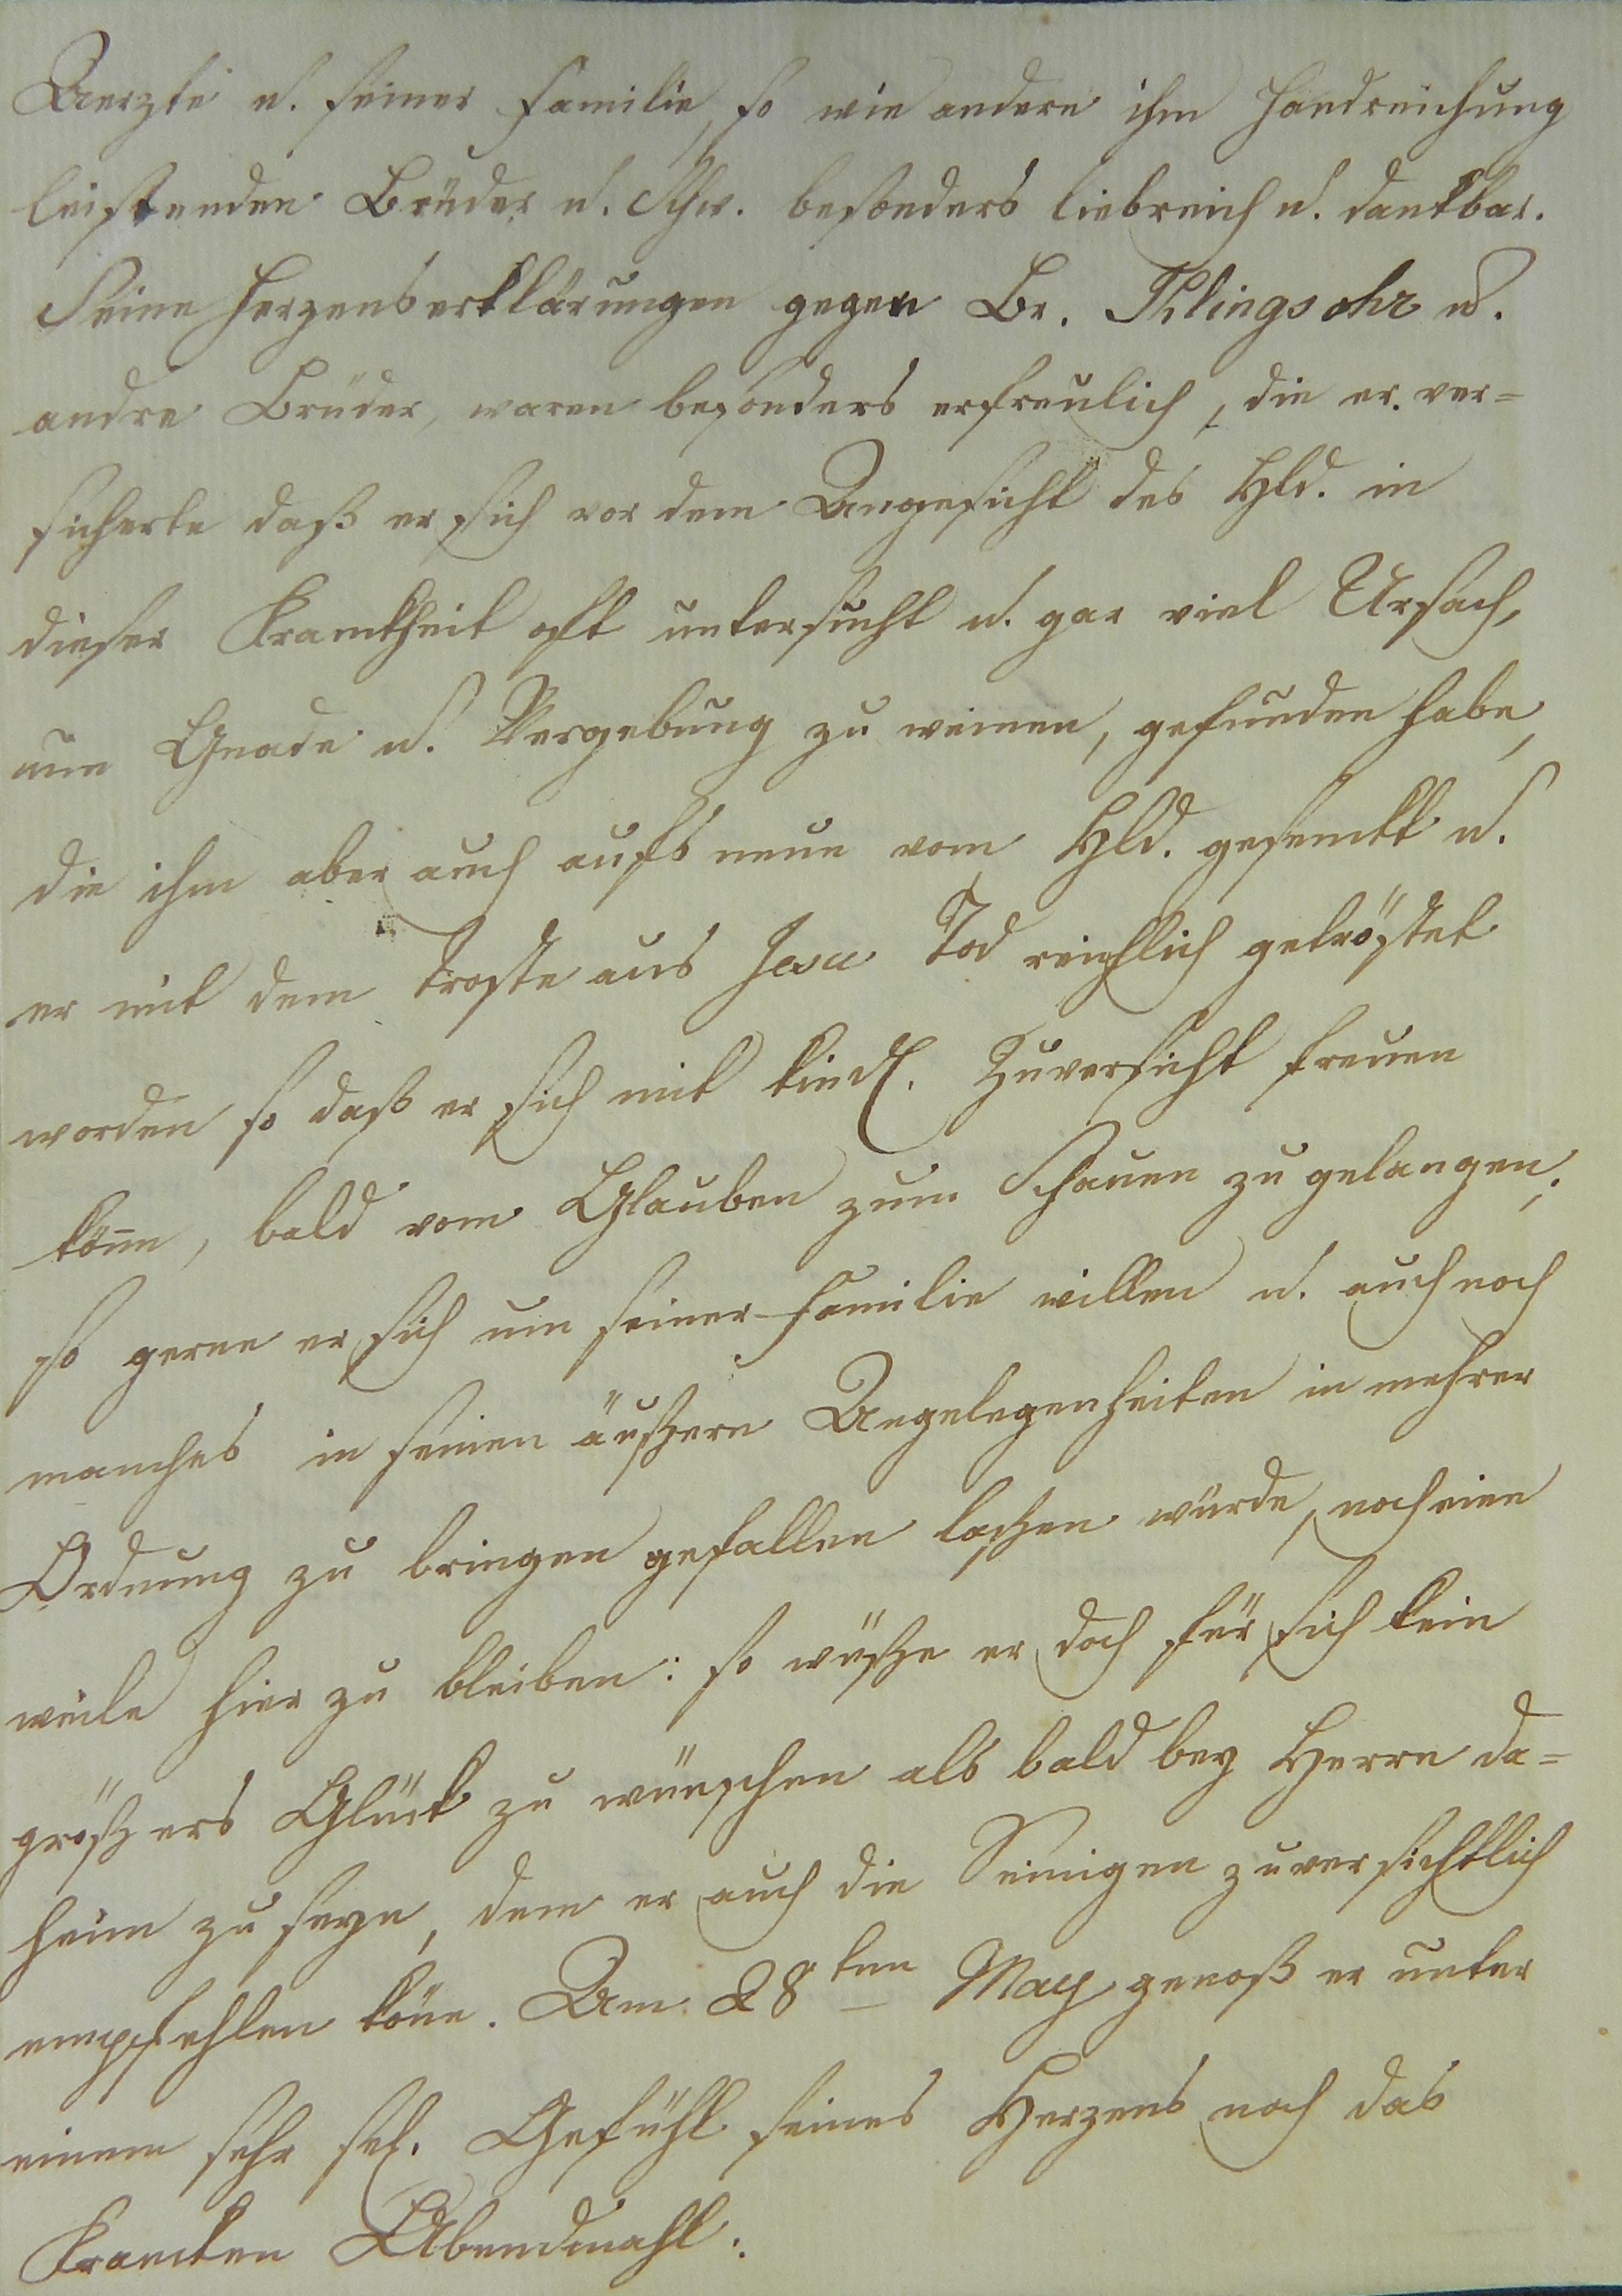 Aerzte u. seiner Familie, so wie andere ihm Handreichung
leistenden Brüder u. Schw. besonders liebreich u. dankbar.
Seine Herzenserklärungen gegen Br. Klingsohr u.
andre Brüder, waren besonders erfreulich, die er ver=
sicherte daß er sich vor dem Angesicht des Hld. in
dieser Krankheit oft untersucht u. gar viel Ursach,
um Gnade u. Vergebung zu weinen, gefunden habe,
die ihm aber auch aufs neue vom Hld. geschenkt u.
er mit dem Troste aus Jesu Tod reichlich getröstet
worden so daß er sich mit kindl. Zuversicht freuen
kön̄e, bald vom Glauben zum Schauen zu gelangen;
so gerne er sich um seiner Familie willen u. auch noch
manches in seinen äußern Angelegenheiten in mehrer
Ordnung zu bringen gefallen laßen würde, noch eine
weile hier zu bleiben: so wüßte er doch für sich kein
größers Glück zu wünschen als bald bey Herrn da=
heim zu seyn, dem er auch die Seinigen zuversichtlich
empfehlen köne. Am 28ten May genoß er unter
einem sehr sel. Gefühl seines Herzens noch das
Krancken Abendmahl.